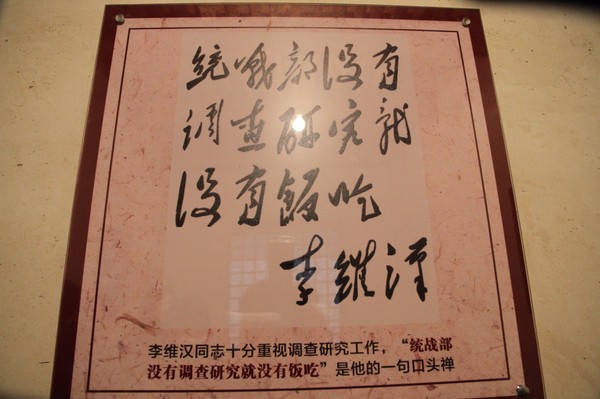 统战部没有
调查研究就
没有饭吃
李维汉
李维汉同志十分重视调查研究工作，“统战部
没有调查研究就没有饭吃”是他的一句口头禅